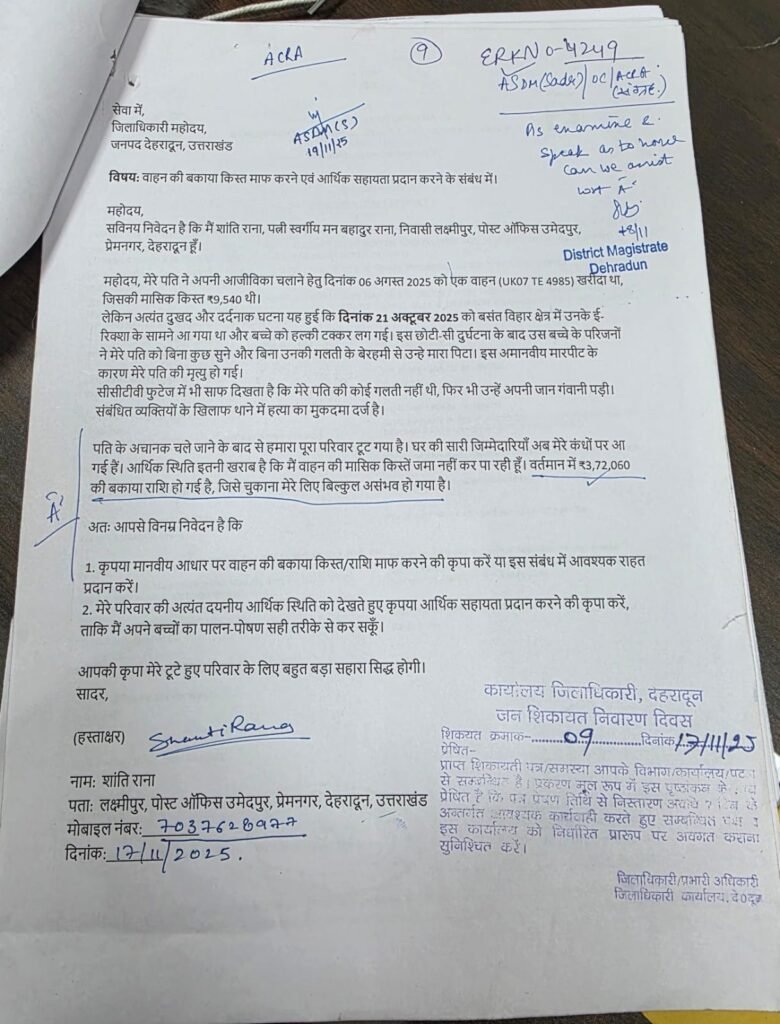 ACRA
9
ERKNO-4249
ASDM(Sadr)/OC/ACRA
(संग्रह.)
ASDM(S)
19/11/25
As examine &
Speak as to how
can we assist
wrt 'A'
18/11
District Magistrate
Dehradun
सेवा में,
जिलाधिकारी महोदय,
जनपद देहरादून, उत्तराखंड
विषय: वाहन की बकाया किस्त माफ करने एवं आर्थिक सहायता प्रदान करने के संबंध में।
महोदय,
सविनय निवेदन है कि मैं शांति राना, पत्नी स्वर्गीय मन बहादुर राना, निवासी लक्ष्मीपुर, पोस्ट ऑफिस उमेदपुर,
प्रेमनगर, देहरादून हूँ।
महोदय, मेरे पति ने अपनी आजीविका चलाने हेतु दिनांक 06 अगस्त 2025 को एक वाहन (UK07 TE 4985) खरीदा था,
जिसकी मासिक किस्त ₹9,540 थी।
लेकिन अत्यंत दुखद और दर्दनाक घटना यह हुई कि दिनांक 21 अक्टूबर 2025 को बसंत विहार क्षेत्र में उनके ई-
रिक्शा के सामने आ गया था और बच्चे को हल्की टक्कर लग गई। इस छोटी-सी दुर्घटना के बाद उस बच्चे के परिजनों
ने मेरे पति को बिना कुछ सुने और बिना उनकी गलती के बेरहमी से उन्हे मारा पिटा। इस अमानवीय मारपीट के
कारण मेरे पति की मृत्यु हो गई।
सीसीटीवी फुटेज में भी साफ दिखता है कि मेरे पति की कोई गलती नहीं थी, फिर भी उन्हें अपनी जान गंवानी पड़ी।
संबंधित व्यक्तियों के खिलाफ थाने में हत्या का मुकदमा दर्ज है।
पति के अचानक चले जाने के बाद से हमारा पूरा परिवार टूट गया है। घर की सारी जिम्मेदारियाँ अब मेरे कंधों पर आ
गई हैं। आर्थिक स्थिति इतनी खराब है कि मैं वाहन की मासिक किस्तें जमा नहीं कर पा रही हूँ। वर्तमान में ₹3,72,060
की बकाया राशि हो गई है, जिसे चुकाना मेरे लिए बिल्कुल असंभव हो गया है।
'A'
अतः आपसे विनम्र निवेदन है कि
1. कृपया मानवीय आधार पर वाहन की बकाया किस्त/राशि माफ करने की कृपा करें या इस संबंध में आवश्यक राहत
प्रदान करें।
2. मेरे परिवार की अत्यंत दयनीय आर्थिक स्थिति को देखते हुए कृपया आर्थिक सहायता प्रदान करने की कृपा करें,
ताकि मैं अपने बच्चों का पालन-पोषण सही तरीके से कर सकूँ।
आपकी कृपा मेरे टूटे हुए परिवार के लिए बहुत बड़ा सहारा सिद्ध होगी।
सादर,
(हस्ताक्षर) Shanti Rana
नाम: शांति राना
पता: लक्ष्मीपुर, पोस्ट ऑफिस उमेदपुर, प्रेमनगर, देहरादून, उत्तराखंड
मोबाइल नंबर:
दिनांक: 17/11/2025.
कार्यालय जिलाधिकारी, देहरादून
जन शिकायत निवारण दिवस
शिकायत क्रमांक-........09..............दिनांक 17/11/25
प्रेषित-
प्राप्त शिकायती पत्र/समस्या आपके विभाग/कार्यालय/पटल
से सम्बन्धित है। प्रकरण मूल रूप में इस पृष्ठांकन के
प्रेषित है कि पत्र प्रेषण तिथि से निस्तारण अवधि 7 दिन के
अन्तर्गत आवश्यक कार्यवाही करते हुए सम्बन्धित
इस कार्यालय को निर्धारित प्रारूप पर अवगत कराना
सुनिश्चित करें।
जिलाधिकारी/प्रभारी अधिकारी
जिलाधिकारी कार्यालय, दे०दून